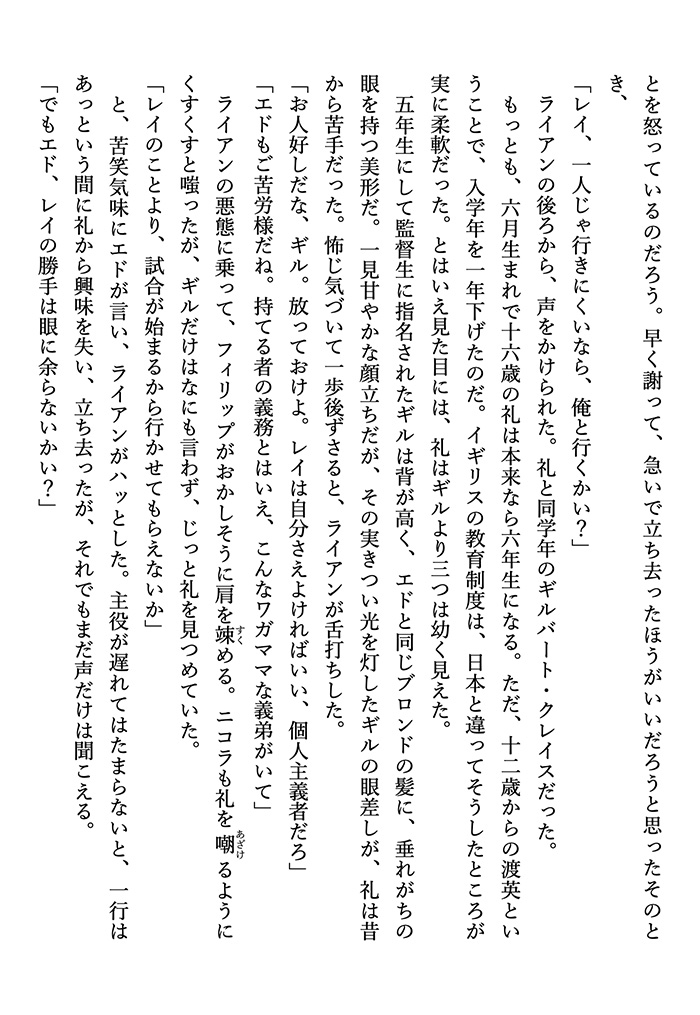 とを怒っているのだろう。早く謝って、急いで立ち去ったほうがいいだろうと思ったそのと
き、
「レイ、一人じゃ行きにくいなら、俺と行くかい？」
ライアンの後ろから、声をかけられた。礼と同学年のギルバート・クレイスだった。
もっとも、六月生まれで十六歳の礼は本来なら六年生になる。ただ、十二歳からの渡英とい
うことで、入学年を一年下げたのだ。イギリスの教育制度は、日本と違ってそうしたところが
実に柔軟だった。とはいえ見た目には、礼はギルより三つは幼く見えた。
五年生にして監督生に指名されたギルは背が高く、エドと同じブロンドの髪に、垂れがちの
眼を持つ美形だ。一見甘やかな顔立ちだが、その実きつい光を灯したギルの眼差しが、礼は昔
から苦手だった。怖じ気づいて一歩後ずさると、ライアンが舌打ちした。
「お人好しだな、ギル。放っておけよ。レイは自分さえよければいい、個人主義者だろ」
「エドもご苦労様だね。持てる者の義務とはいえ、こんなワガママな義弟がいて」
ライアンの悪態に乗って、フィリップがおかしそうに肩を竦すくめる。ニコラも礼を嘲あざけるように
くすくすと嗤ったが、ギルだけはなにも言わず、じっと礼を見つめていた。
「レイのことより、試合が始まるから行かせてもらえないか」
と、苦笑気味にエドが言い、ライアンがハッとした。主役が遅れてはたまらないと、一行は
あっという間に礼から興味を失い、立ち去ったが、それでもまだ声だけは聞こえる。
「でもエド、レイの勝手は眼に余らないかい？」